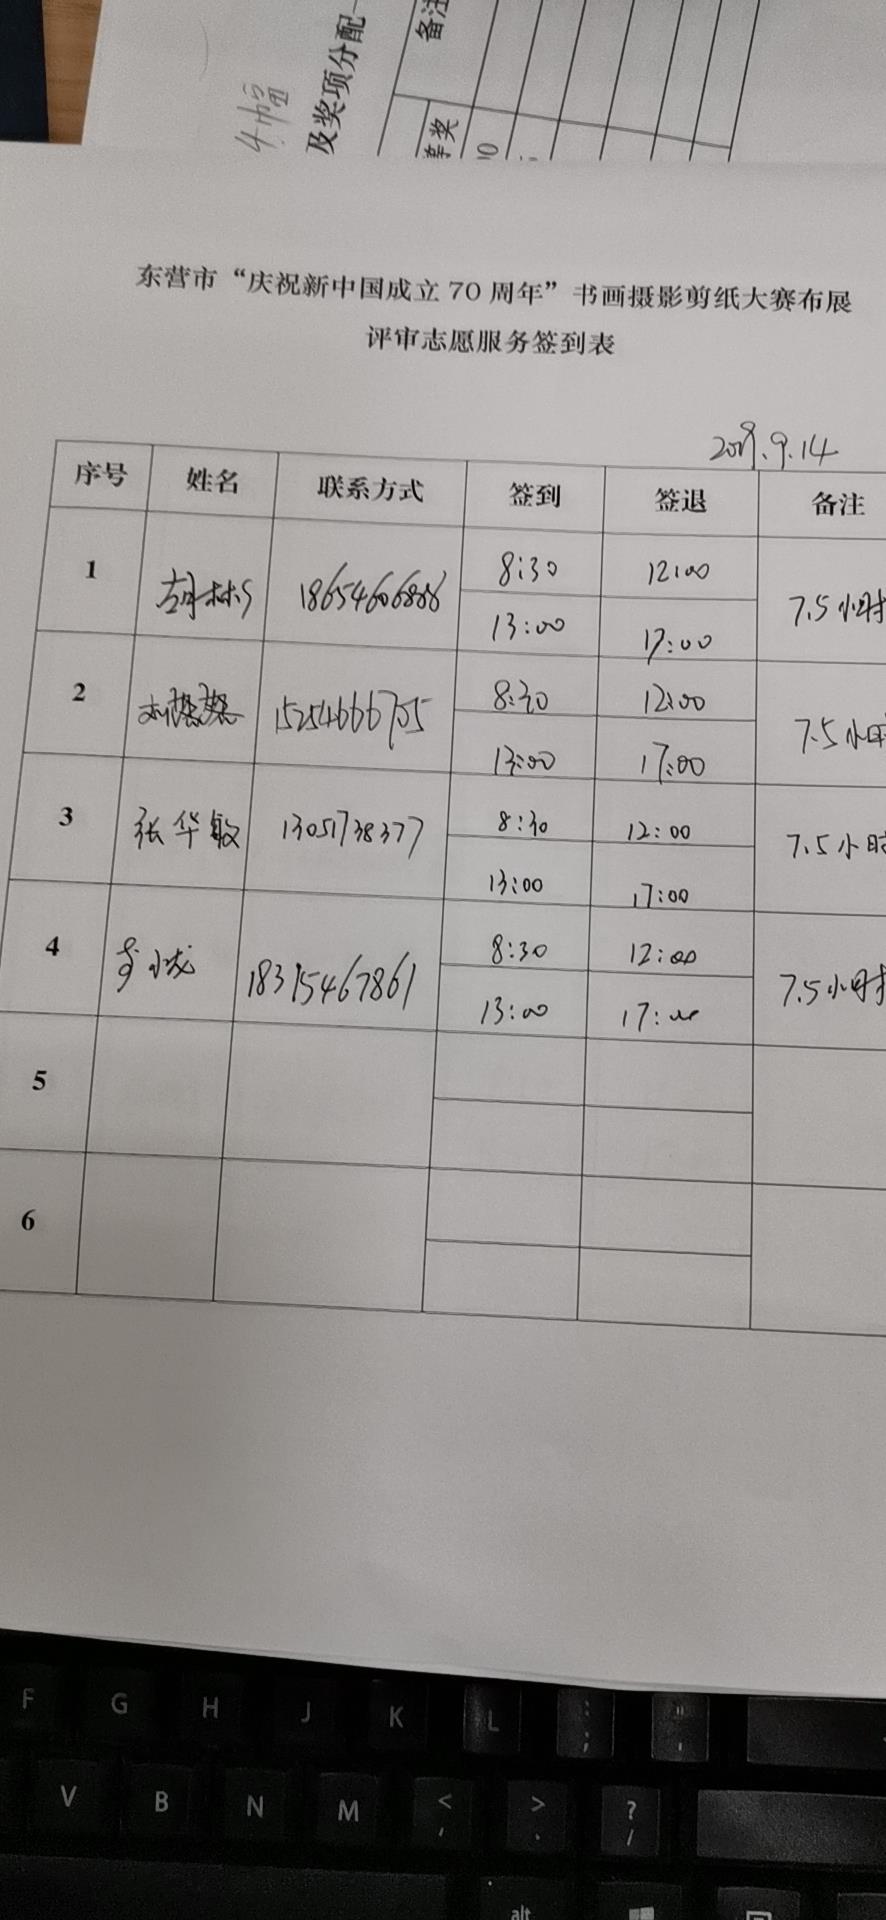 备注
及奖项分配
4幅
东营市“庆祝新中国成立 70 周年”书画摄影剪纸大赛布展
评审志愿服务签到表
2019.9.14
序号 姓名 联系方式 签到 签退 备注
1 18654606888 8:30 12:00 7.5小时
13:00 17:00
2 15254666705 8:30 12:00 7.5小时
13:00 17:00
3 张华敏 13051738377 8:30 12:00 7.5小时
13:00 17:00
4 李小龙 18315467861 8:30 12:00 7.5小时
13:00 17:00
5
6
F G H J K L : ; " '
V B N M < , > . ? /
alt